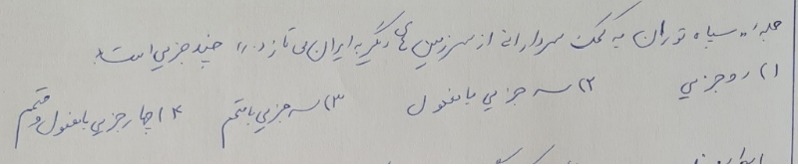 جملهٔ «سپاه توران به کمک سردارانی از سرزمین های دیگر به ایران می تازد.» چند جزیی است؟
۱) دوجزیی ۲) سه جزیی با مفعول ۳) سه جزیی با متمم ۴) چهارجزیی با مفعول و متمم